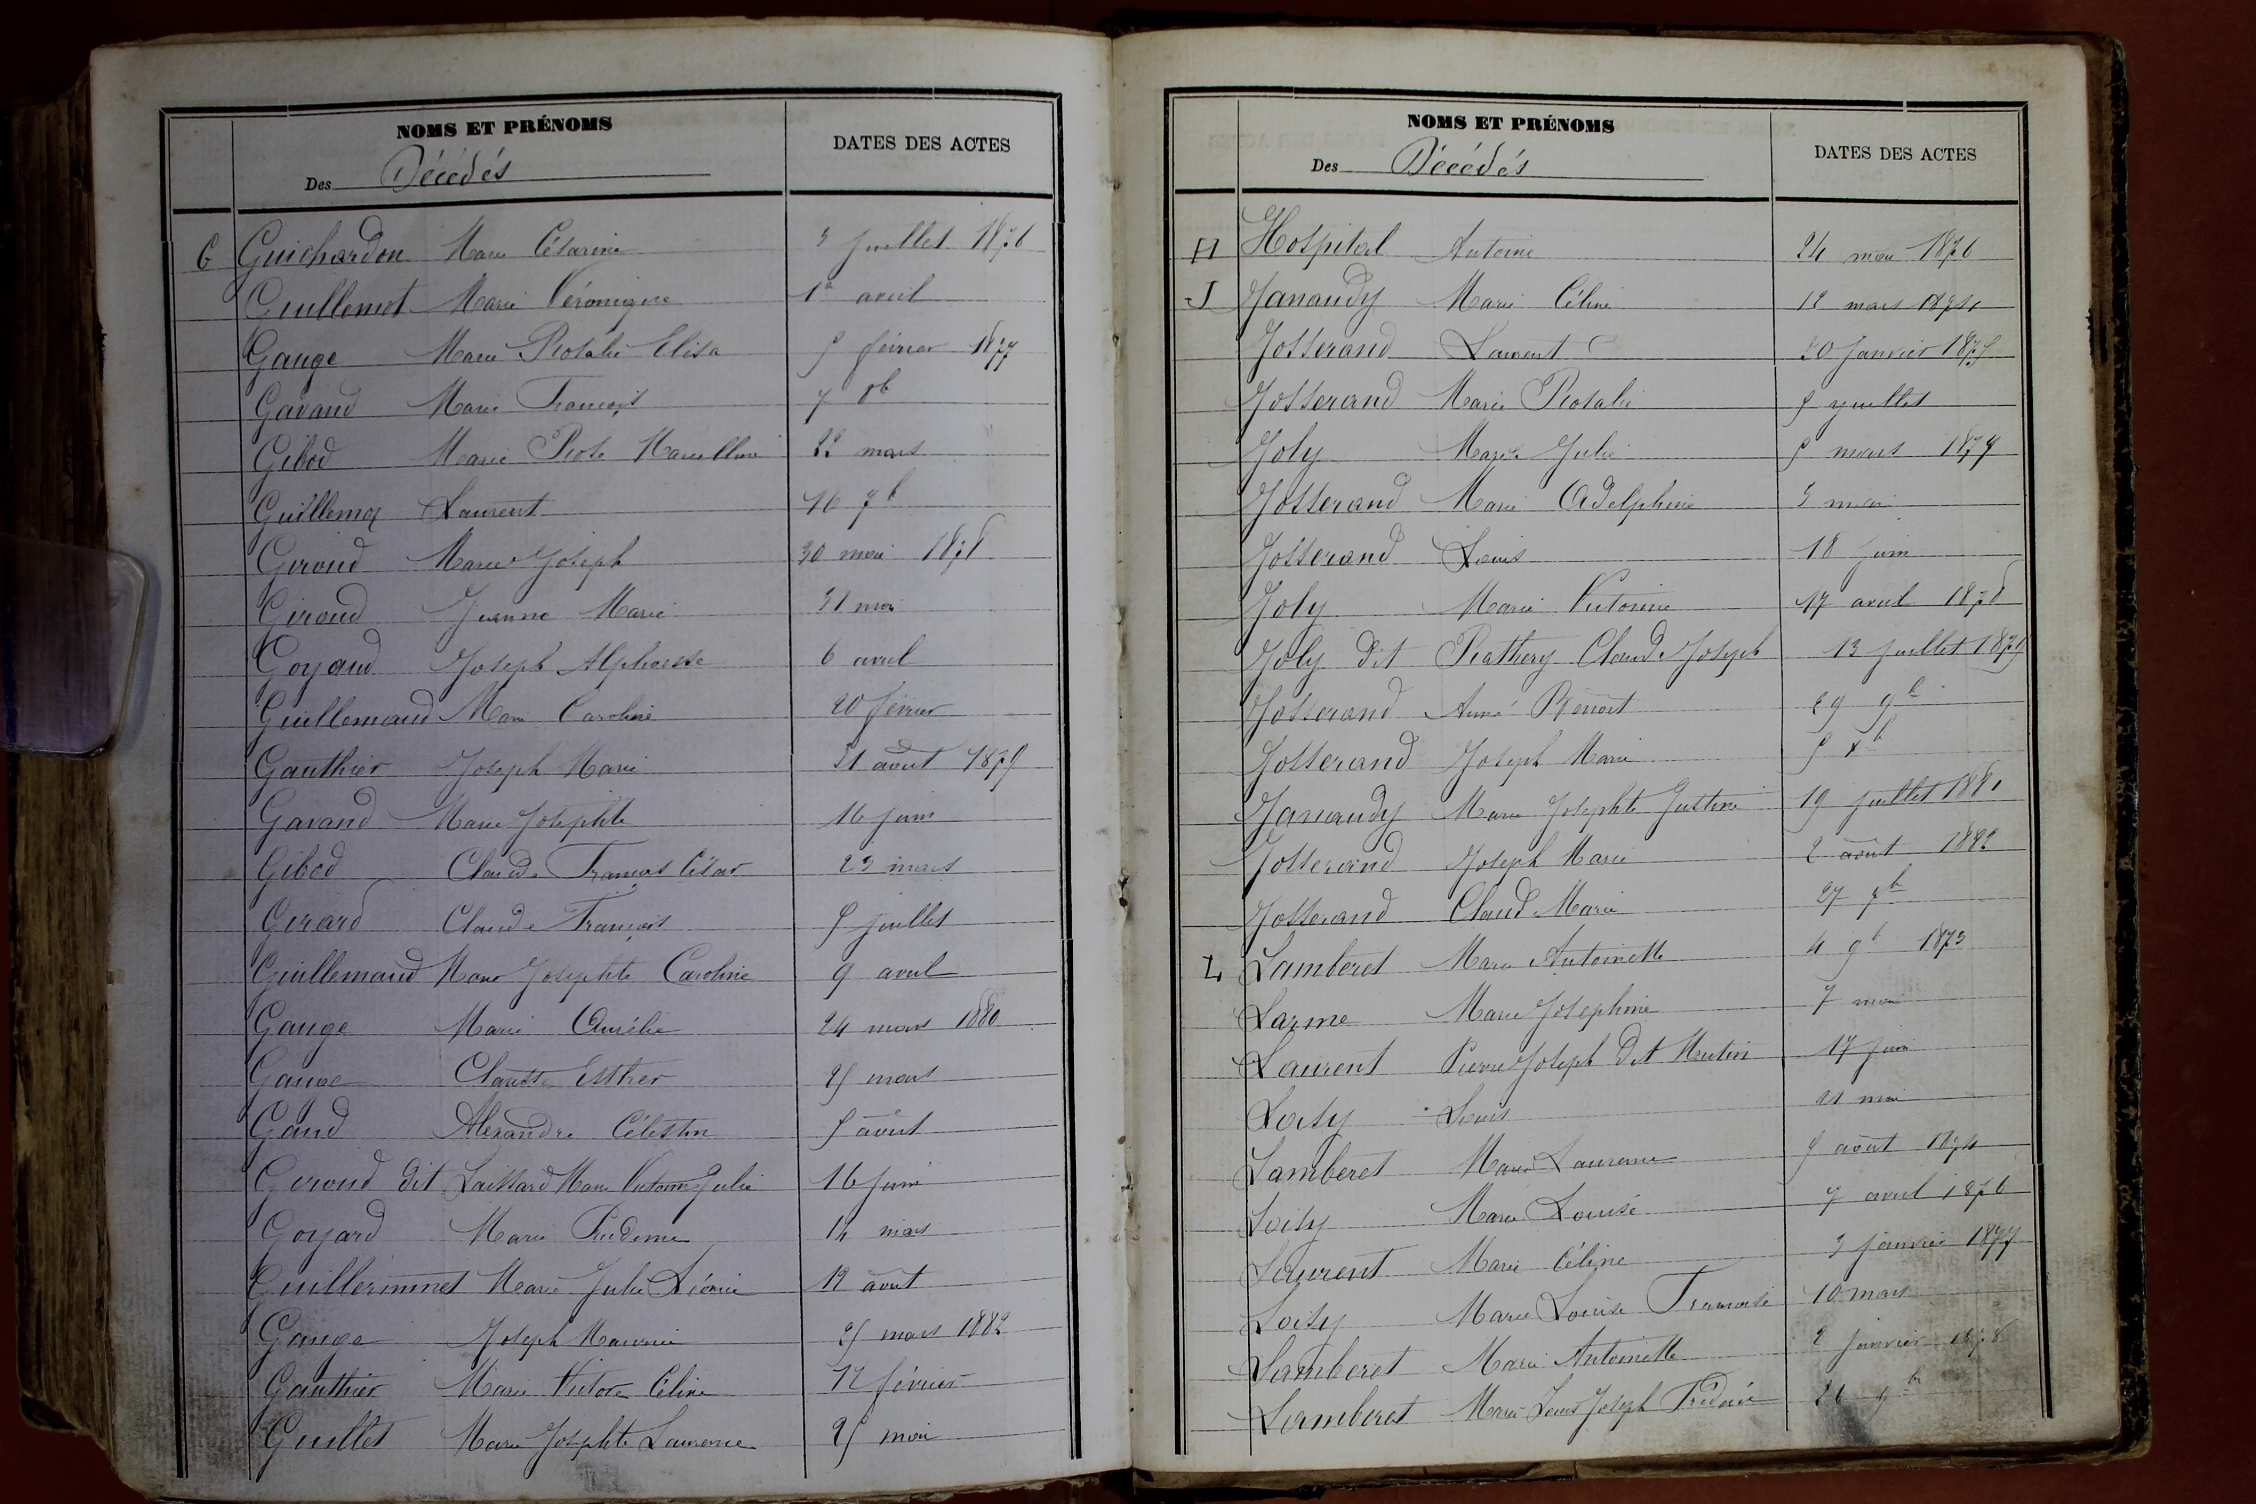 NOMS ET PRÉNOMS
DATES DES ACTES
Des Décédés
G Guichardon Marie Césarine 3 juillet 1876
Guillemot Marie Véronique 1er avril
Gauge Marie Rosalie Elisa 5 février 1877
Gavand Marie François 7 8b
Gibod Marie Rose Marcelline 22 mars
Guillemoz Laurent 16 7b
Giroud Marie Joseph 30 mai 1878
Giroud Jeanne Marie 31 mai
Goyaud Joseph Alphonse 6 avril
Guillemaud Marie Caroline 20 février
Gauthier Joseph Marie 31 août 1879
Gavand Marie Josephte 16 juin
Gibod Claude François César 23 mars
Girard Claude François 5 juillet
Guillemaud Marie Josephte Caroline 9 avril
Gauge Marie Aurélie 24 mars 1880
Gauge Clarisse Esther 25 mars
Gaud Alexandre Célestin 5 août
Giroud dit Laissard Marie Victorine Julie 16 juin
Goyard Marie Prudence 14 mars
Guillerminet Marie Julie Léonie 12 août
Gauge Joseph Maurice 25 mars 1882
Gauthier Marie Victore Céline 12 février
Guillet Marie Josephte Laurence 25 mai
NOMS ET PRÉNOMS
DATES DES ACTES
Des Décédés
H Hospital Antoine 24 mai 1876
J Janaudy Marie Céline 12 mars 1874
Josserand Laurent 30 janvier 1875
Josserand Marie Rosalie 5 juillet
Joly Marie Julie 5 mars 1877
Josserand Marie Adelphine 3 mai
Josserand Louis 18 juin
Joly Marie Victorine 17 avril 1878
Joly dit Rathery Claude Joseph 13 juillet 1879
Josserand Aimé Benoit 29 9b
Josserand Joseph Marie 5 Xb
Janaudy Marie Josephte Justine 19 juillet 1881
Josserand Joseph Marie 2 août 1882
Josserand Claude Marie 27 7b
L Lamberet Marie Antoinette 4 9b 1873
Larme Marie Josephine 7 mai
Laurent Pierre Joseph dit Mutin 17 juin
Loisy Louis 21 mai
Lamberet Marie Laurence 5 août 1874
Loisy Marie Louise 7 avril 1876
Laurent Marie Céline 3 janvier 1877
Loisy Marie Louise Françoise 10 mars
Lamberet Marie Antoinette 2 janvier 1878
Lamberet Marie Louis Joseph Frédéric 26 9bre